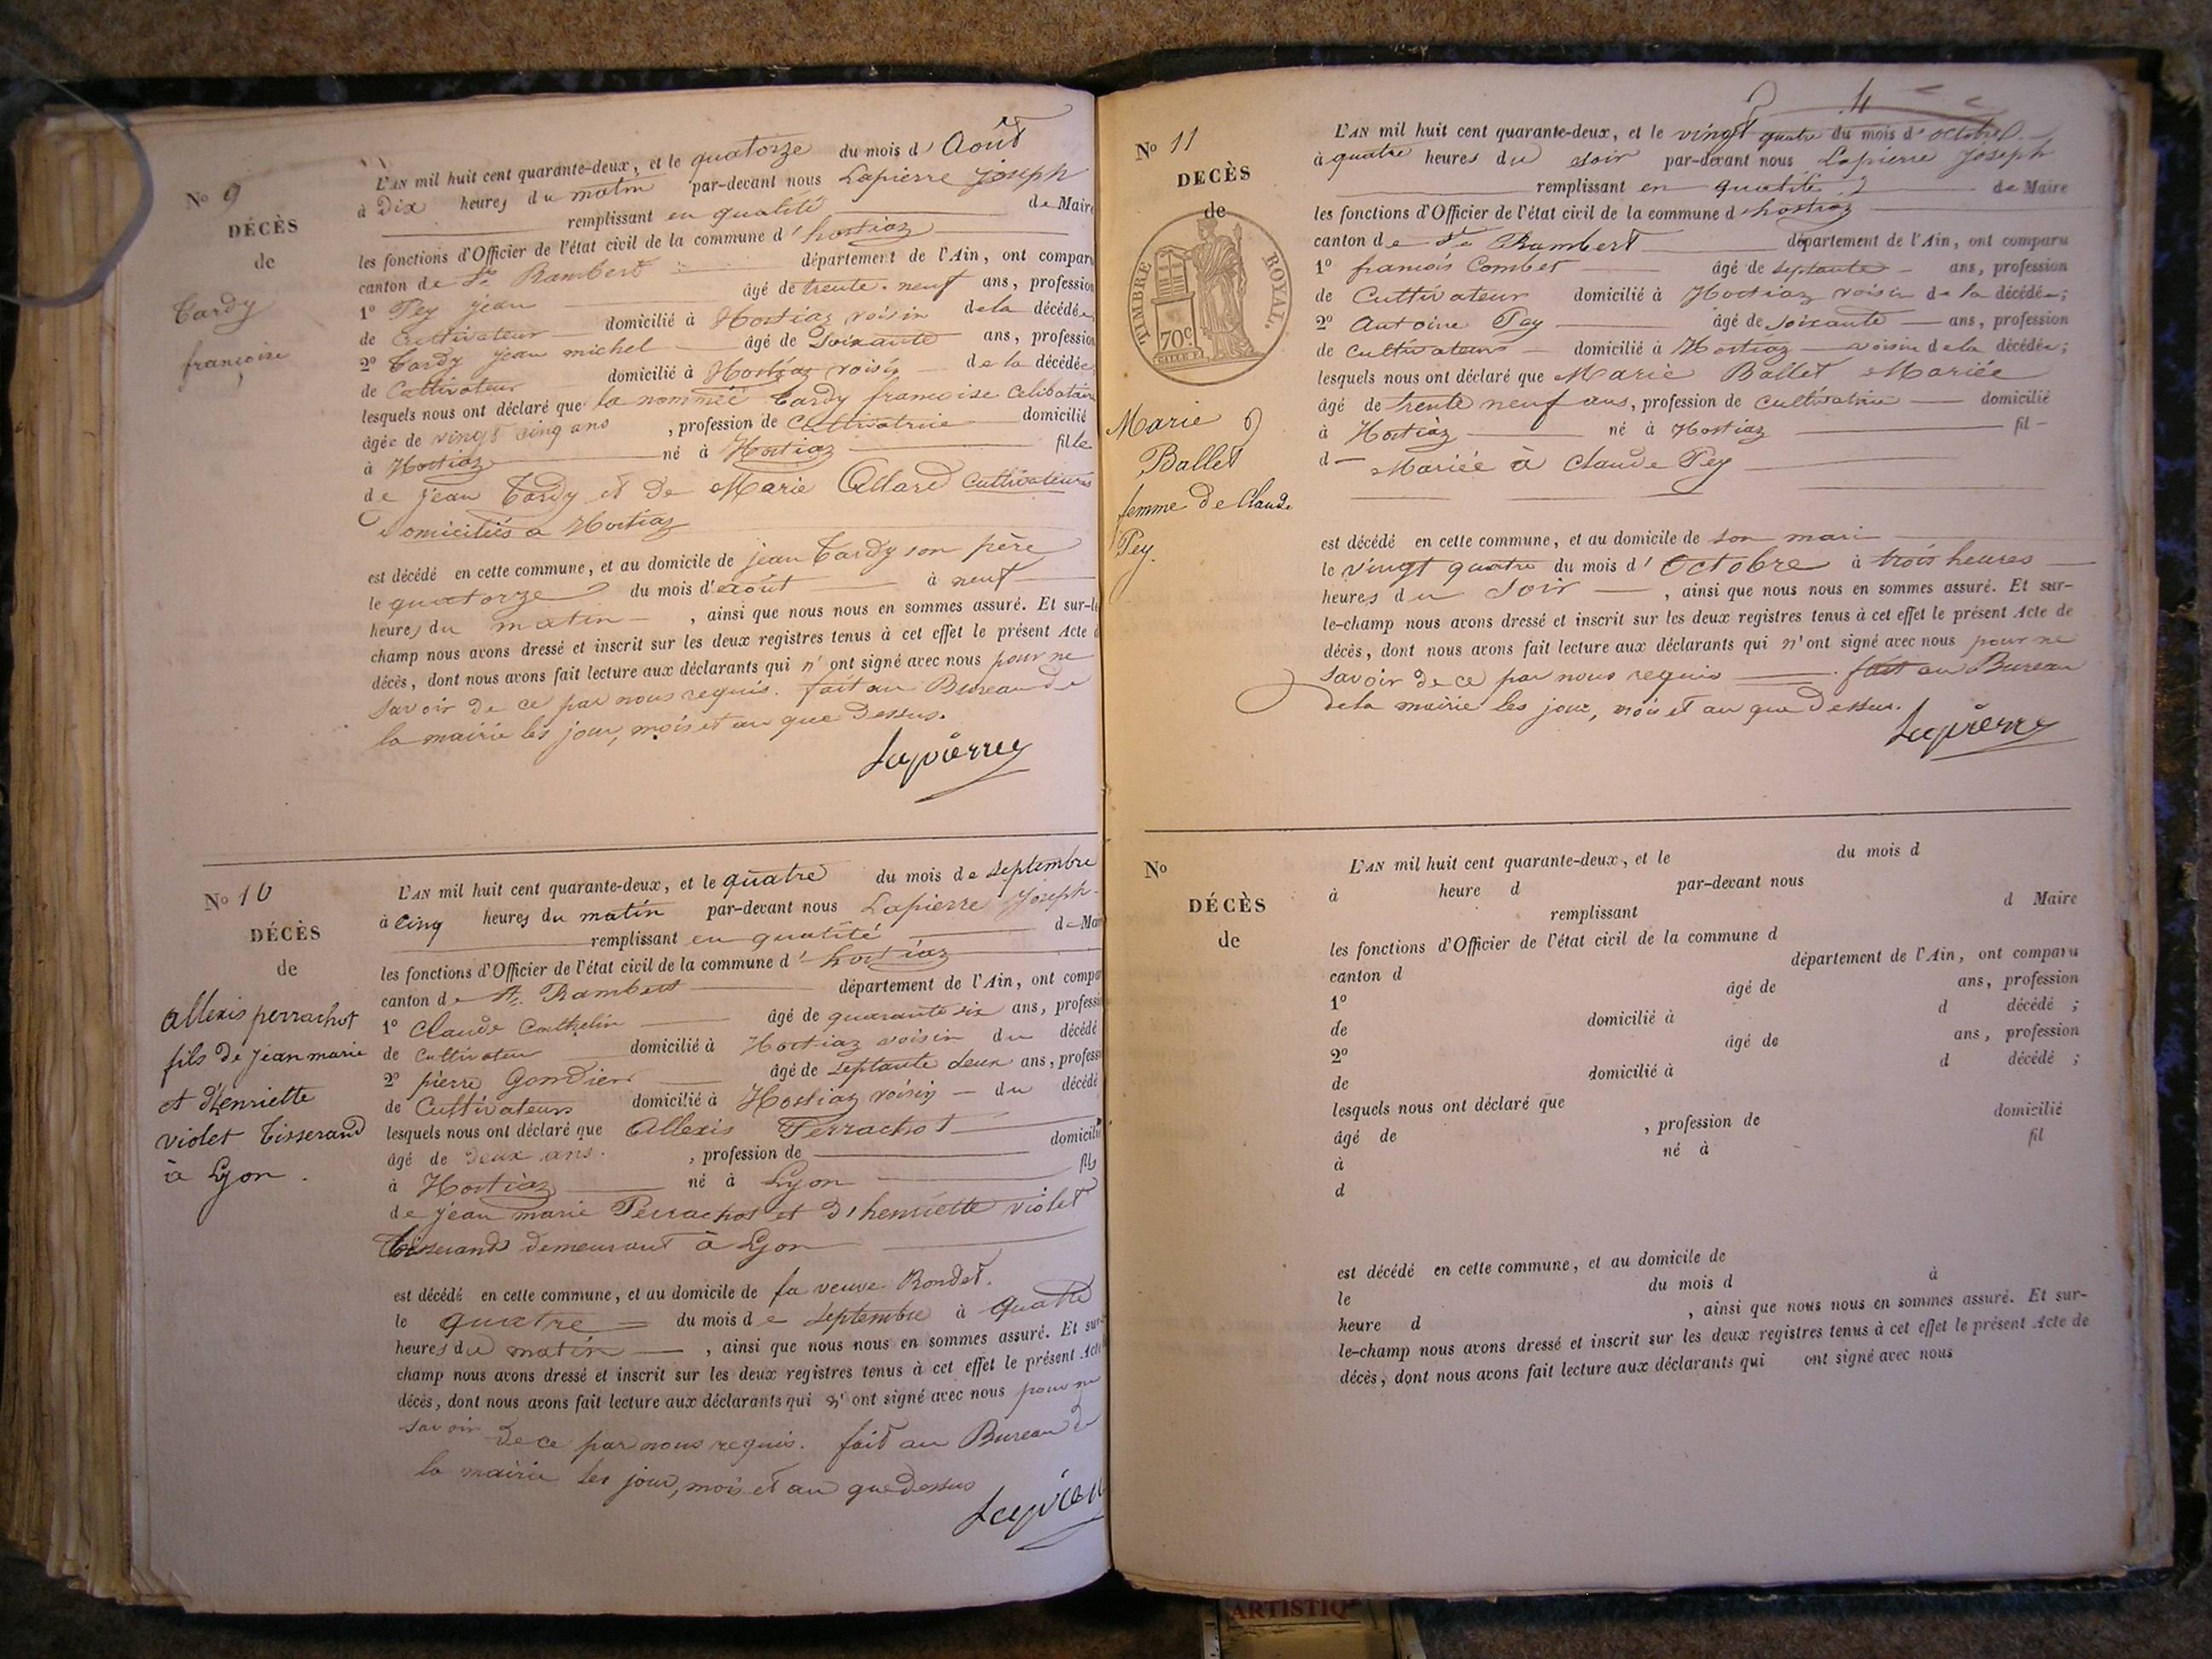 No 9
DÉCÈS
de
Tardy
françoise
L'AN mil huit cent quarante-deux, et le quatorze du mois d' Août
à Dix heures du matin par-devant nous Lapierre joseph
remplissant en qualité de Maire
les fonctions d'Officier de l'état civil de la commune d' hostiaz
canton de St. Rambert département de l'Ain, ont comparu
1º Pey jean âgé de trente-neuf ans, profession
de Cultivateur domicilié à Hostiaz voisin de la décédée
2º Tardy jean michel âgé de Soixante ans, profession
de Cultivateur domicilié à Hostiaz voisin de la décédée
lesquels nous ont déclaré que la nommée Tardy francoise Celibataire
âgée de vingt cinq ans , profession de Cultivatrice domicilié
à Hostiaz né à Hostiaz fille
de jean Tardy et de Marie Allard Cultivateurs
Domiciliés a Hostiaz
est décédé en cette commune, et au domicile de jean Tardy son père
le quatorze du mois d' août à neuf
heures du matin , ainsi que nous nous en sommes assuré. Et sur-le
champ nous avons dressé et inscrit sur les deux registres tenus à cet effet le présent Acte d
décès, dont nous avons fait lecture aux déclarants qui n' ont signé avec nous pour ne
savoir de ce par nous requis. fait au Bureau de
la mairie les jour, mois et an que Dessus.
Lapierre
No 10
DÉCÈS
de
allexis perrachot
fils de jean marie
et d'henriette
violet tisserand
à Lyon.
L'AN mil huit cent quarante-deux, et le quatre du mois de septembre
à cinq heures du matin par-devant nous Lapierre joseph
remplissant en qualité de Mai
les fonctions d'Officier de l'état civil de la commune d' hostiaz
canton de St. Rambert département de l'Ain, ont compa
1º Claude âgé de quarante six ans, professi
de Cultivateur domicilié à Hostiaz voisin du décédé
2º pierre Gondier âgé de septante deux ans, profess
de Cultivateurs domicilié à Hostiaz voisin du décédé
lesquels nous ont déclaré que Allexis Perrachot
âgé de deux ans. , profession de domicilié
à Hostiaz né à Lyon fils
de jean marie Perrachot et d'henriette violet
tisserands demeurant à Lyon
est décédé en cette commune, et au domicile de la veuve Rondet.
le quatre du mois de septembre à quatre
heures du matin , ainsi que nous nous en sommes assuré. Et sur
champ nous avons dressé et inscrit sur les deux registres tenus à cet effet le présent Acte
décès, dont nous avons fait lecture aux déclarants qui n' ont signé avec nous pour ne
savoir de ce par nous requis. fait au Bureau de
la mairie les jour, mois et an que dessus
Lapierr
4
No 11
DÉCÈS
de
TIMBRE ROYAL.
70c.
Marie
Ballet
femme de Claude
Pey.
L'AN mil huit cent quarante-deux, et le vingt quatre du mois d' octobre
à quatre heures du soir par-devant nous Lapierre joseph
remplissant en qualité de Maire
les fonctions d'Officier de l'état civil de la commune d' hostiaz
canton de St. Rambert département de l'Ain, ont comparu
1º francois Combet âgé de septante ans, profession
de Cultivateur domicilié à Hostiaz voisin de la décédée;
2º Antoine Pey âgé de soixante ans, profession
de Cultivateurs domicilié à Hostiaz voisin de la décédée;
lesquels nous ont déclaré que Marie Ballet Mariée
âgé de trente neuf ans, profession de Cultivatrice domicilié
à Hostiaz né à Hostiaz fil
d Mariée à Claude Pey
est décédé en cette commune, et au domicile de son mari
le vingt quatre du mois d' Octobre à trois heures
heures du Soir , ainsi que nous nous en sommes assuré. Et sur-
le-champ nous avons dressé et inscrit sur les deux registres tenus à cet effet le présent Acte de
décès, dont nous avons fait lecture aux déclarants qui n' ont signé avec nous pour ne
savoir de ce par nous requis fait au Bureau
de la mairie les jour, mois et an que Dessus.
Lapierre
No
DÉCÈS
de
L'AN mil huit cent quarante-deux, et le du mois d
à heure d par-devant nous
remplissant d Maire
les fonctions d'Officier de l'état civil de la commune d
canton d département de l'Ain, ont comparu
1º âgé de ans, profession
de domicilié à d décédé ;
2º âgé de ans, profession
de domicilié à d décédé ;
lesquels nous ont déclaré que
âgé de , profession de domicilié
à né à fil
d
est décédé en cette commune, et au domicile de
le du mois d à
heure d , ainsi que nous nous en sommes assuré. Et sur-
le-champ nous avons dressé et inscrit sur les deux registres tenus à cet effet le présent Acte de
décès, dont nous avons fait lecture aux déclarants qui ont signé avec nous
ARTISTIQ